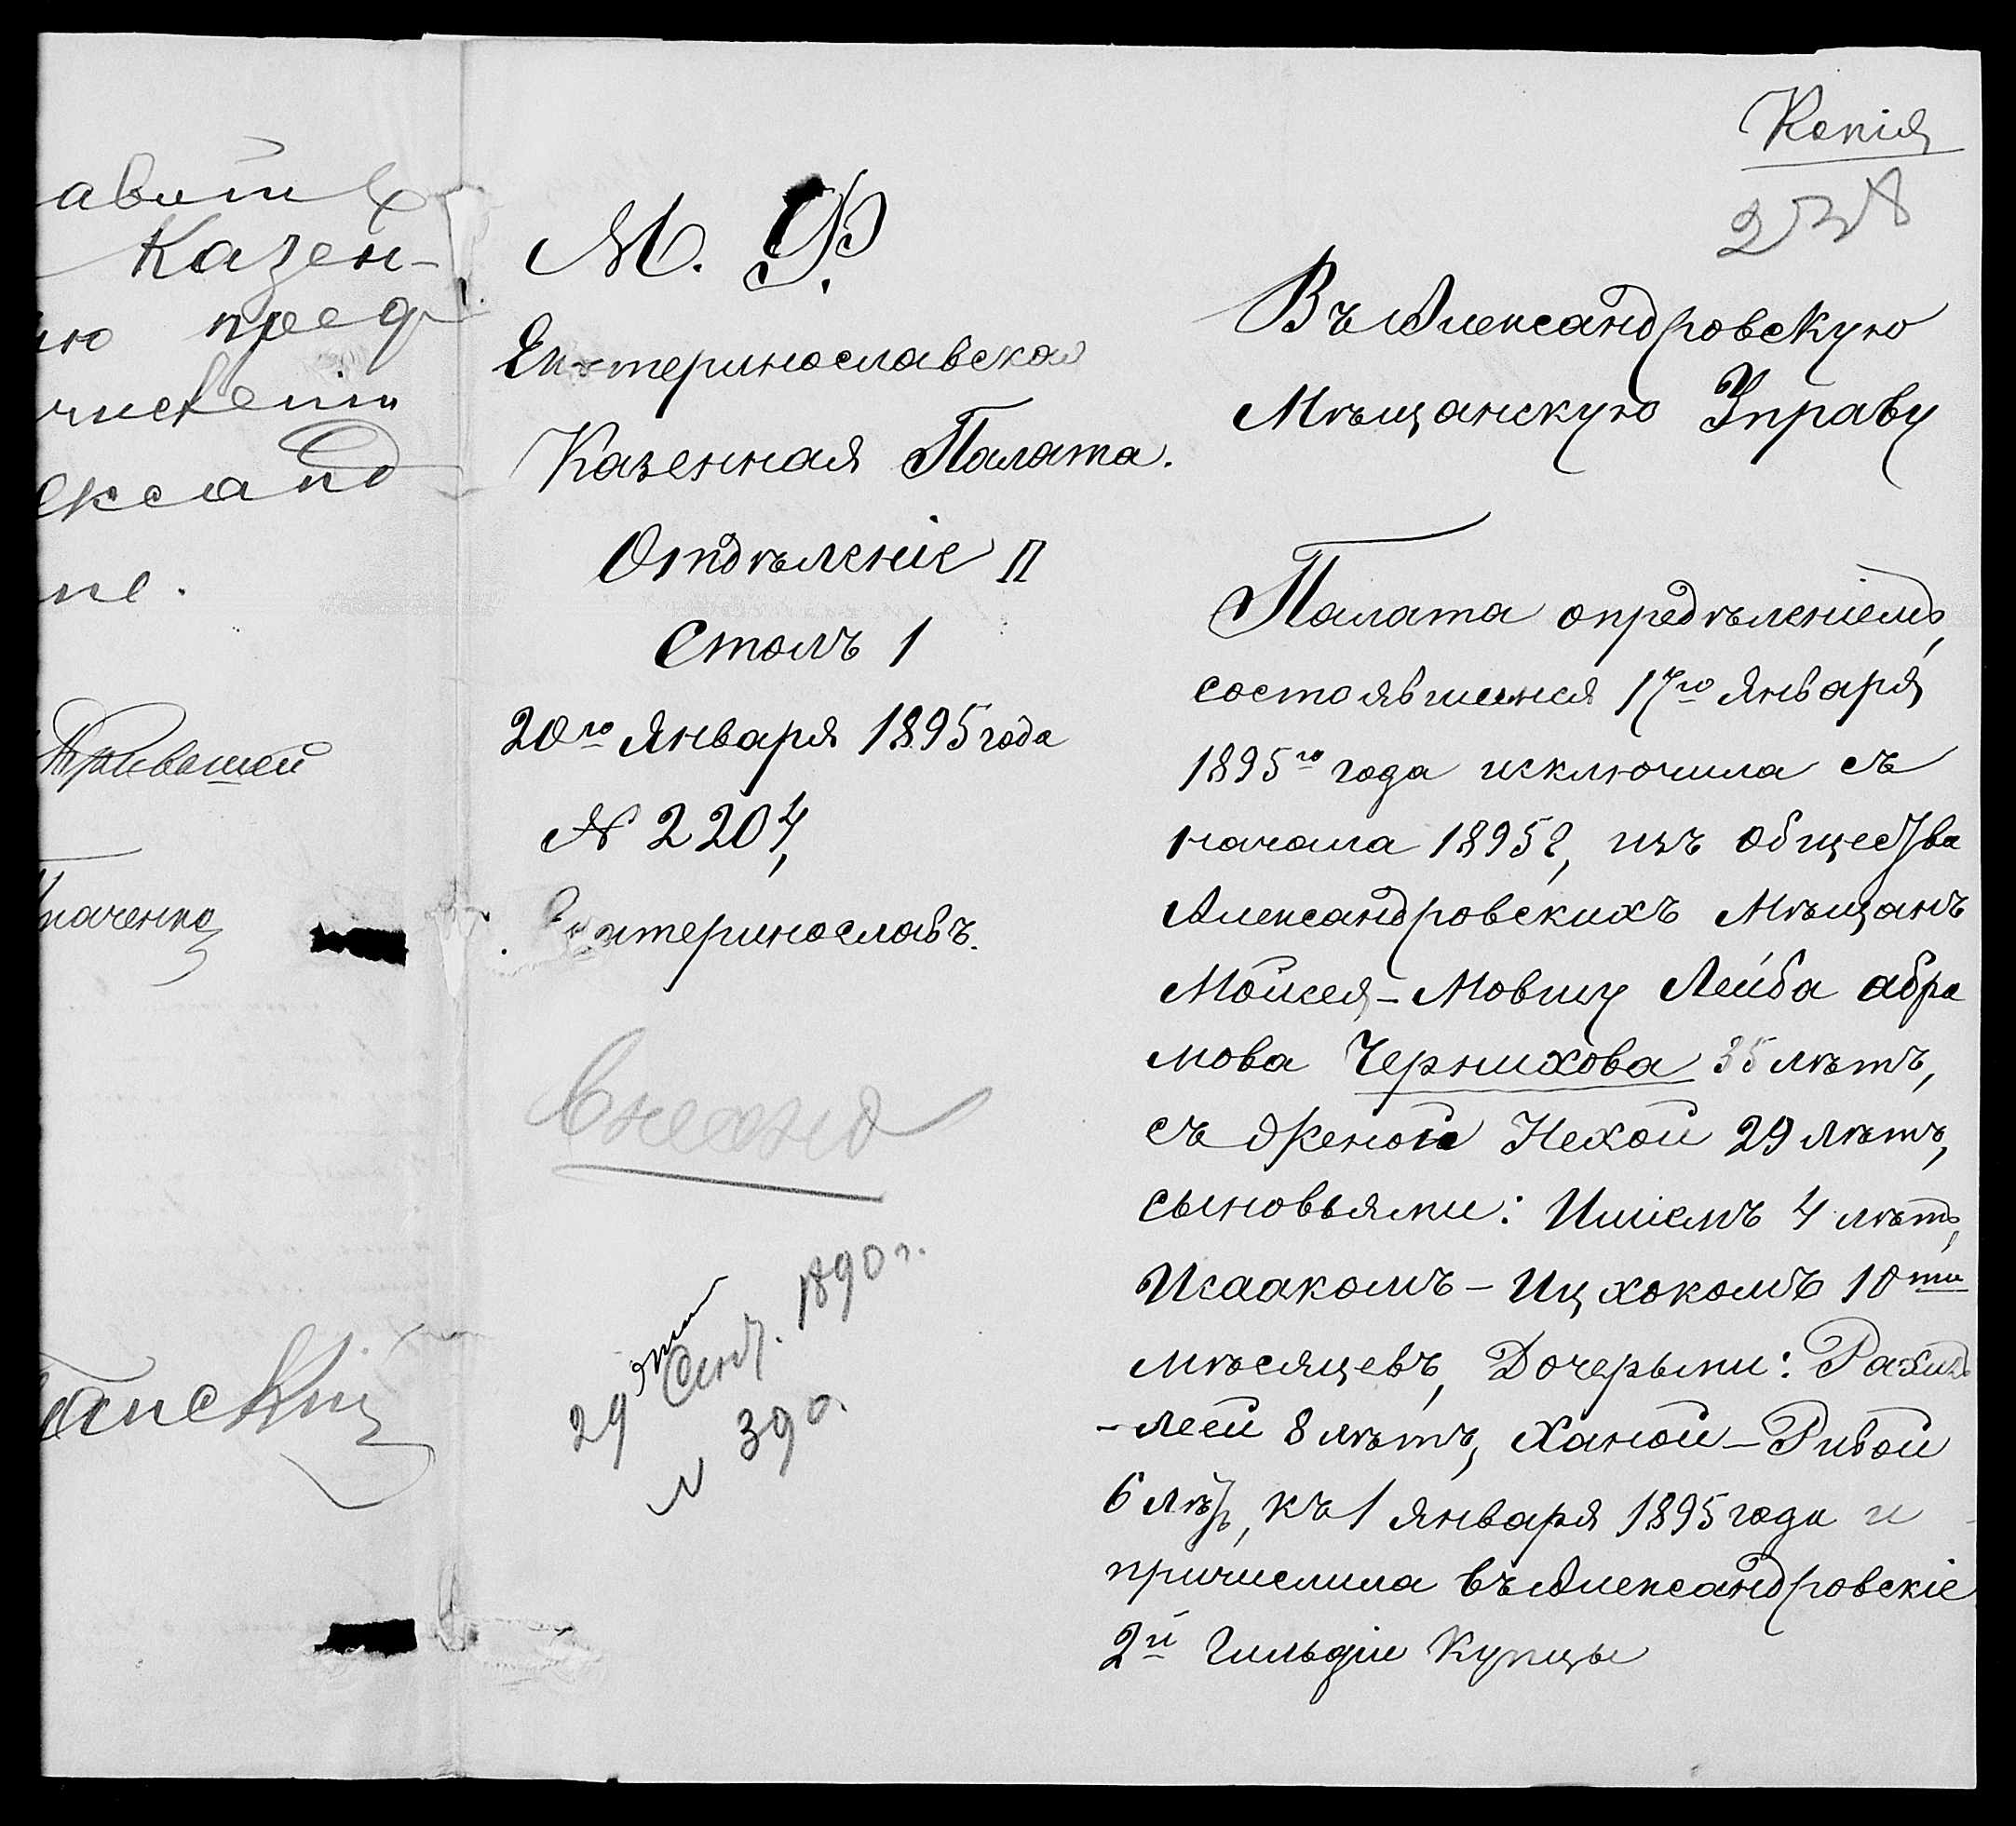 Казен-
пред
ександ
Копія
238
М. Ф.
Екатеринославская
Казенная Палата.
Отдѣленіе II
Столъ 1
20го Января 1895 года
№ 2204,
Екатеринославъ.
29 Сент. 1890 г.
№ 390.
Въ Александровскую
Мѣщанскую Управу
Палата опредѣленіемъ,
состоявшимся 17го Января
1895го года исключила съ
начала 1895 г, изъ общества
Александровскихъ Мѣщанъ
Мойсея-Мовшу Лейба Абра
мова Чернихова 35 лѣтъ,
съ женой Нехой 29 лѣтъ,
сыновьями: 4 лѣтъ,
Исаакомъ-Ицхокомъ 10ти
мѣсяцевъ, Дочерьми:
-Леей 8 лѣтъ, Ханой-Ривой
6 лѣтъ, къ 1 Января 1895 года и
причислила въ Александровскіе
2й Гильдіи Купцы